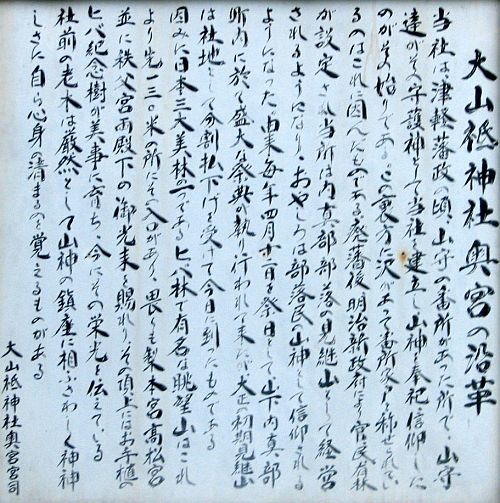 大山祗神社奥宮の沿革
当社は、津軽藩政の頃、山守の番所があった所で、山守
達がその守護神として当社を建立し山神を奉祀信仰した
のがその始りである。この裏方に沢があって番所家戸と称せられて
るのはこれに因んだものである廃藩後、明治新政府により官民有林
が設定され当所は内真部部落の見継山として経営
されるようになり、おやしろは部落民の山神として信仰される
ようになった由来毎年四月十二日を祭日として山下内真部
町内に於て盛大な祭典が執り行われて来たが大正の初期見継山
は社地として分割払下げを受けて今日に到ったものである
因みに日本三大美林の一つであるヒバ林で有名な眺望山はこれ
より先一三〇米の所にその入口があり畏くも梨本宮高松宮
並に秩父宮両殿下の御光来を賜れりその頂上にはお手植の
ヒバ紀念樹が美事に育ち、今にその栄光を伝えている
社前の老木は厳然として山神の鎮座に相ふさわしく神神
しさに自ら心身の清まるのを覚えるものがある
大山祗神社奥宮宮司